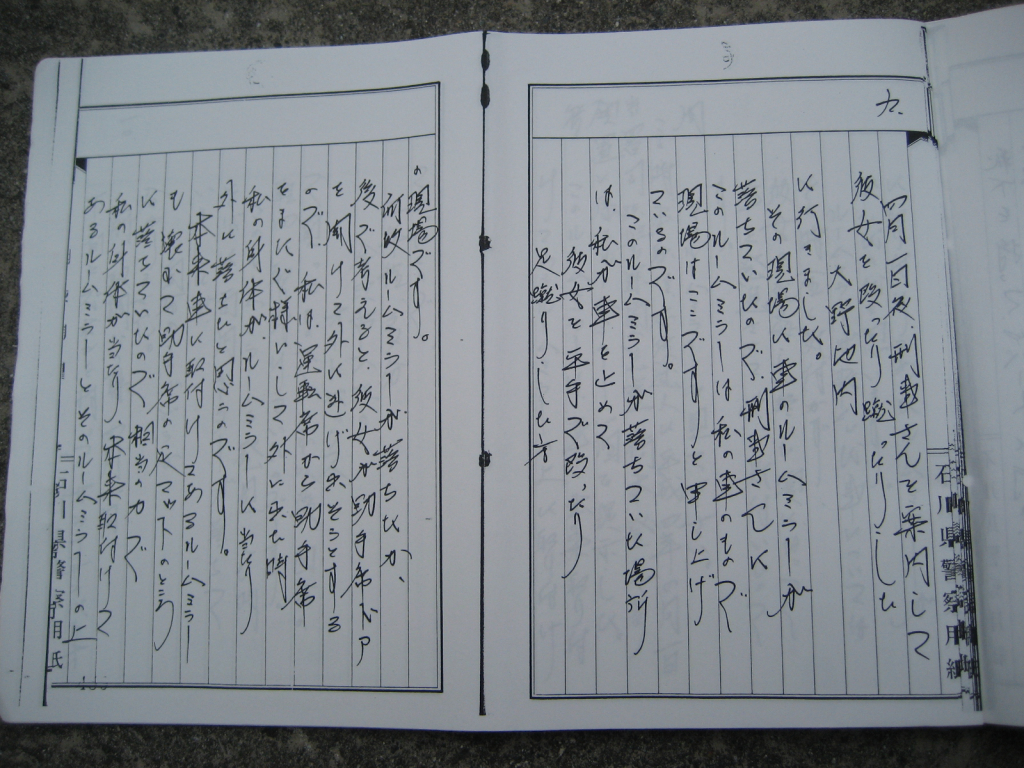 九、
四月一日夜、刑事さんを案内して
彼女を殴ったり蹴ったりした
大野地内
に行きました。
その現場に車のルームミラーが
落ちていたので、刑事さんに
このルームミラーは私の車のもので
現場はここですりと申し上げ
ているのです。
このルームミラーが落ちていた場所
は、私が車を止めて
彼女を平手で殴ったり
足蹴りした方
石川県警察用紙
の現場です。
何故ルームミラーが落ちたか、
後で考えると、彼女が助手席ドア
を開けて外に逃げ出そうとする
ので、私は、運転席から助手席
をまたぐ様にして外に出た時
私の身体が、ルームミラーに当たり
外に落ちたと思うのです。
本来車に取付けてあるルームミラー
も壊れて助手席の足マットのところ
に落ちていたので、相当の力で
私の身体が当たり、本来取付けて
あるルームミラーとそのルームミラーの上
石川県警察用紙